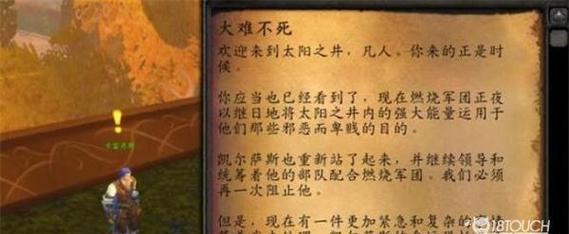 大难不死
欢迎来到太阳之井，凡人。你来的正是时
候。
你应当也已经看到了，现在燃烧军团正夜
以继日地将太阳之井内的强大能量运用于
他们那些邪恶而卑贱的目的。
凯尔萨斯也重新站了起来，并继续领导和
统筹着他的部队配合燃烧军团。我们必须
再一次阻止他。
但是，现在有一件更加紧急和复杂的
18TOUCH